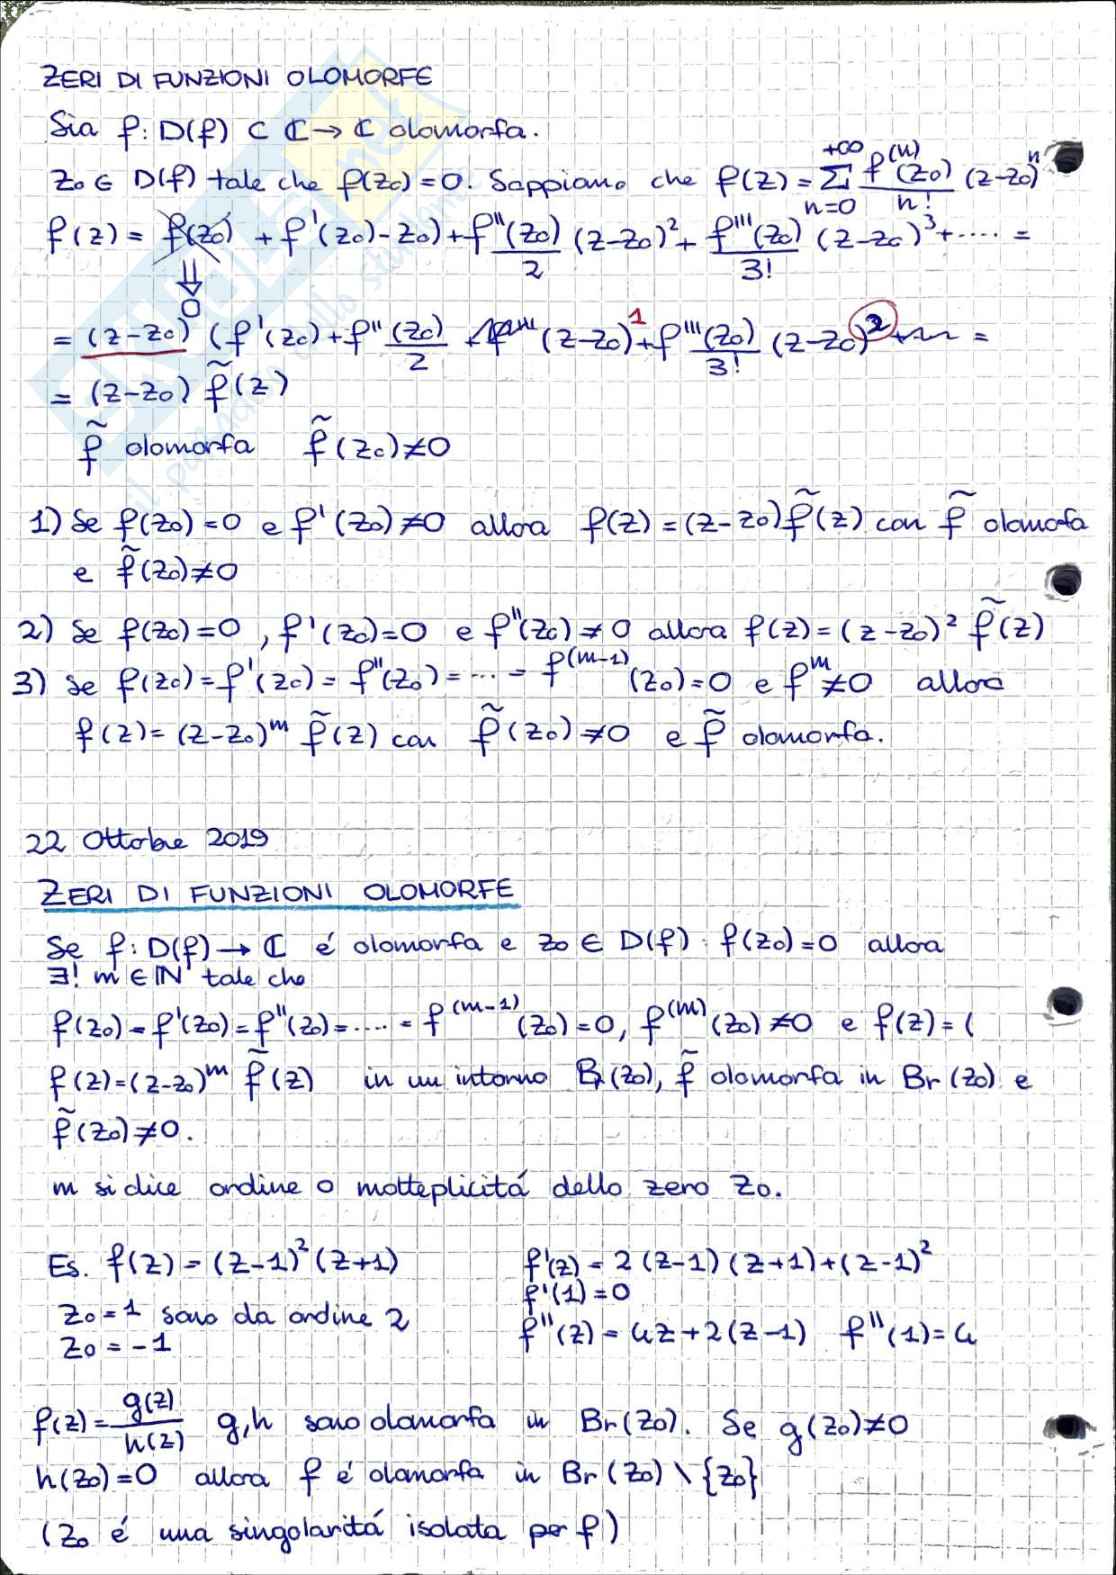 ZERI DI FUNZIONI OLOMORFE
Sia f: D(f) ⊂ ℂ → ℂ olomorfa.
z₀ ∈ D(f) tale che f(z₀) = 0. Sappiamo che f(z) = Σ_{n=0}^{+∞} f^(n)(z₀)/n! (z-z₀)^n
f(z) = f(z₀) + f'(z₀)-z₀) + f''(z₀)/2 (z-z₀)² + f'''(z₀)/3! (z-z₀)³ + .... =
⇓
0
= (z-z₀) (f'(z₀) + f''(z₀)/2 (z-z₀)¹ + f'''(z₀)/3! (z-z₀)² + =
= (z-z₀) f̃(z)
f̃ olomorfa f̃(z₀) ≠ 0
1) Se f(z₀) = 0 e f'(z₀) ≠ 0 allora f(z) = (z-z₀) f̃(z) con f̃ olomofa
e f̃(z₀) ≠ 0
2) Se f(z₀) = 0, f'(z₀) = 0 e f''(z₀) ≠ 0 allora f(z) = (z-z₀)² f̃(z)
3) Se f(z₀) = f'(z₀) = f''(z₀) = ... = f^(m-1)(z₀) = 0 e f^m ≠ 0 allora
f(z) = (z-z₀)^m f̃(z) con f̃(z₀) ≠ 0 e f̃ olomorfa.
22 Ottobre 2019
ZERI DI FUNZIONI OLOMORFE
Se f: D(f) → ℂ é olomorfa e z₀ ∈ D(f) : f(z₀) = 0 allora
∃! m ∈ ℕ tale che
f(z₀) = f'(z₀) = f''(z₀) = .... = f^(m-1)(z₀) = 0, f^(m)(z₀) ≠ 0 e f(z) = (
f(z) = (z-z₀)^m f̃(z) in un intorno Br(z₀), f̃ olomorfa in Br(z₀) e
f̃(z₀) ≠ 0.
m si dice ordine o molteplicitá dello zero z₀.
Es. f(z) = (z-1)² (z+1) f'(z) = 2(z-1)(z+1) + (z-1)²
f'(1) = 0
z₀ = 1 sono da ordine 2 f''(z) = 4z + 2(z-1) f''(1) = 4
z₀ = -1
f(z) = g(z)/h(z) g,h sono olomorfa in Br(z₀). Se g(z₀) ≠ 0
h(z₀) = 0 allora f é olomorfa in Br(z₀) \ {z₀}
(z₀ é una singolaritá isolata per f)